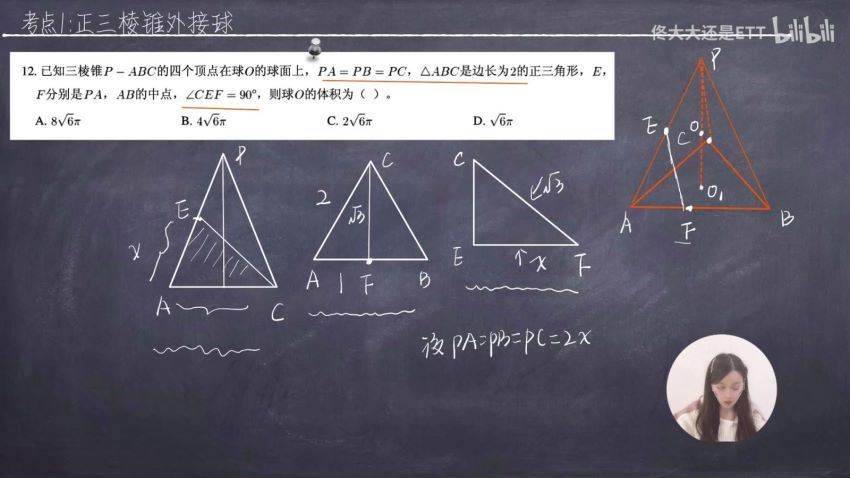 考点1:正三棱锥外接球
佟大大还是ETT bilibili
12. 已知三棱锥P－ABC的四个顶点在球O的球面上，PA＝PB＝PC，△ABC是边长为2的正三角形，E，
F分别是PA，AB的中点，∠CEF＝90°，则球O的体积为（ ）。
A. 8√6π B. 4√6π C. 2√6π D. √6π
P
E
x
A
C
C
2
√3
A
1
F
B
C
√3
E
x
F
P
E
C
O
O₁
A
F
B
设PA=PB=PC=2x